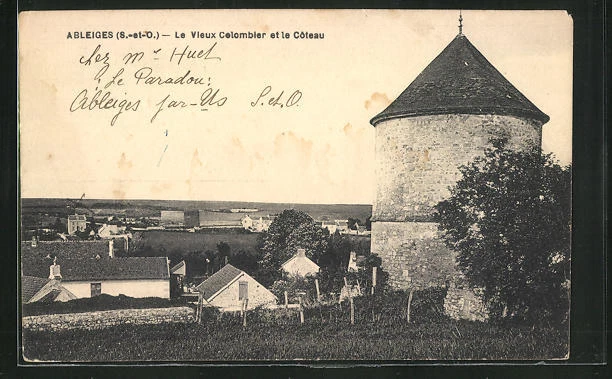 ABLEIGES (S.-et-O.) — Le Vieux Colombier et le Côteau
chez Mr Huet
"Le Paradou"
Ableiges par-Us S. et O.